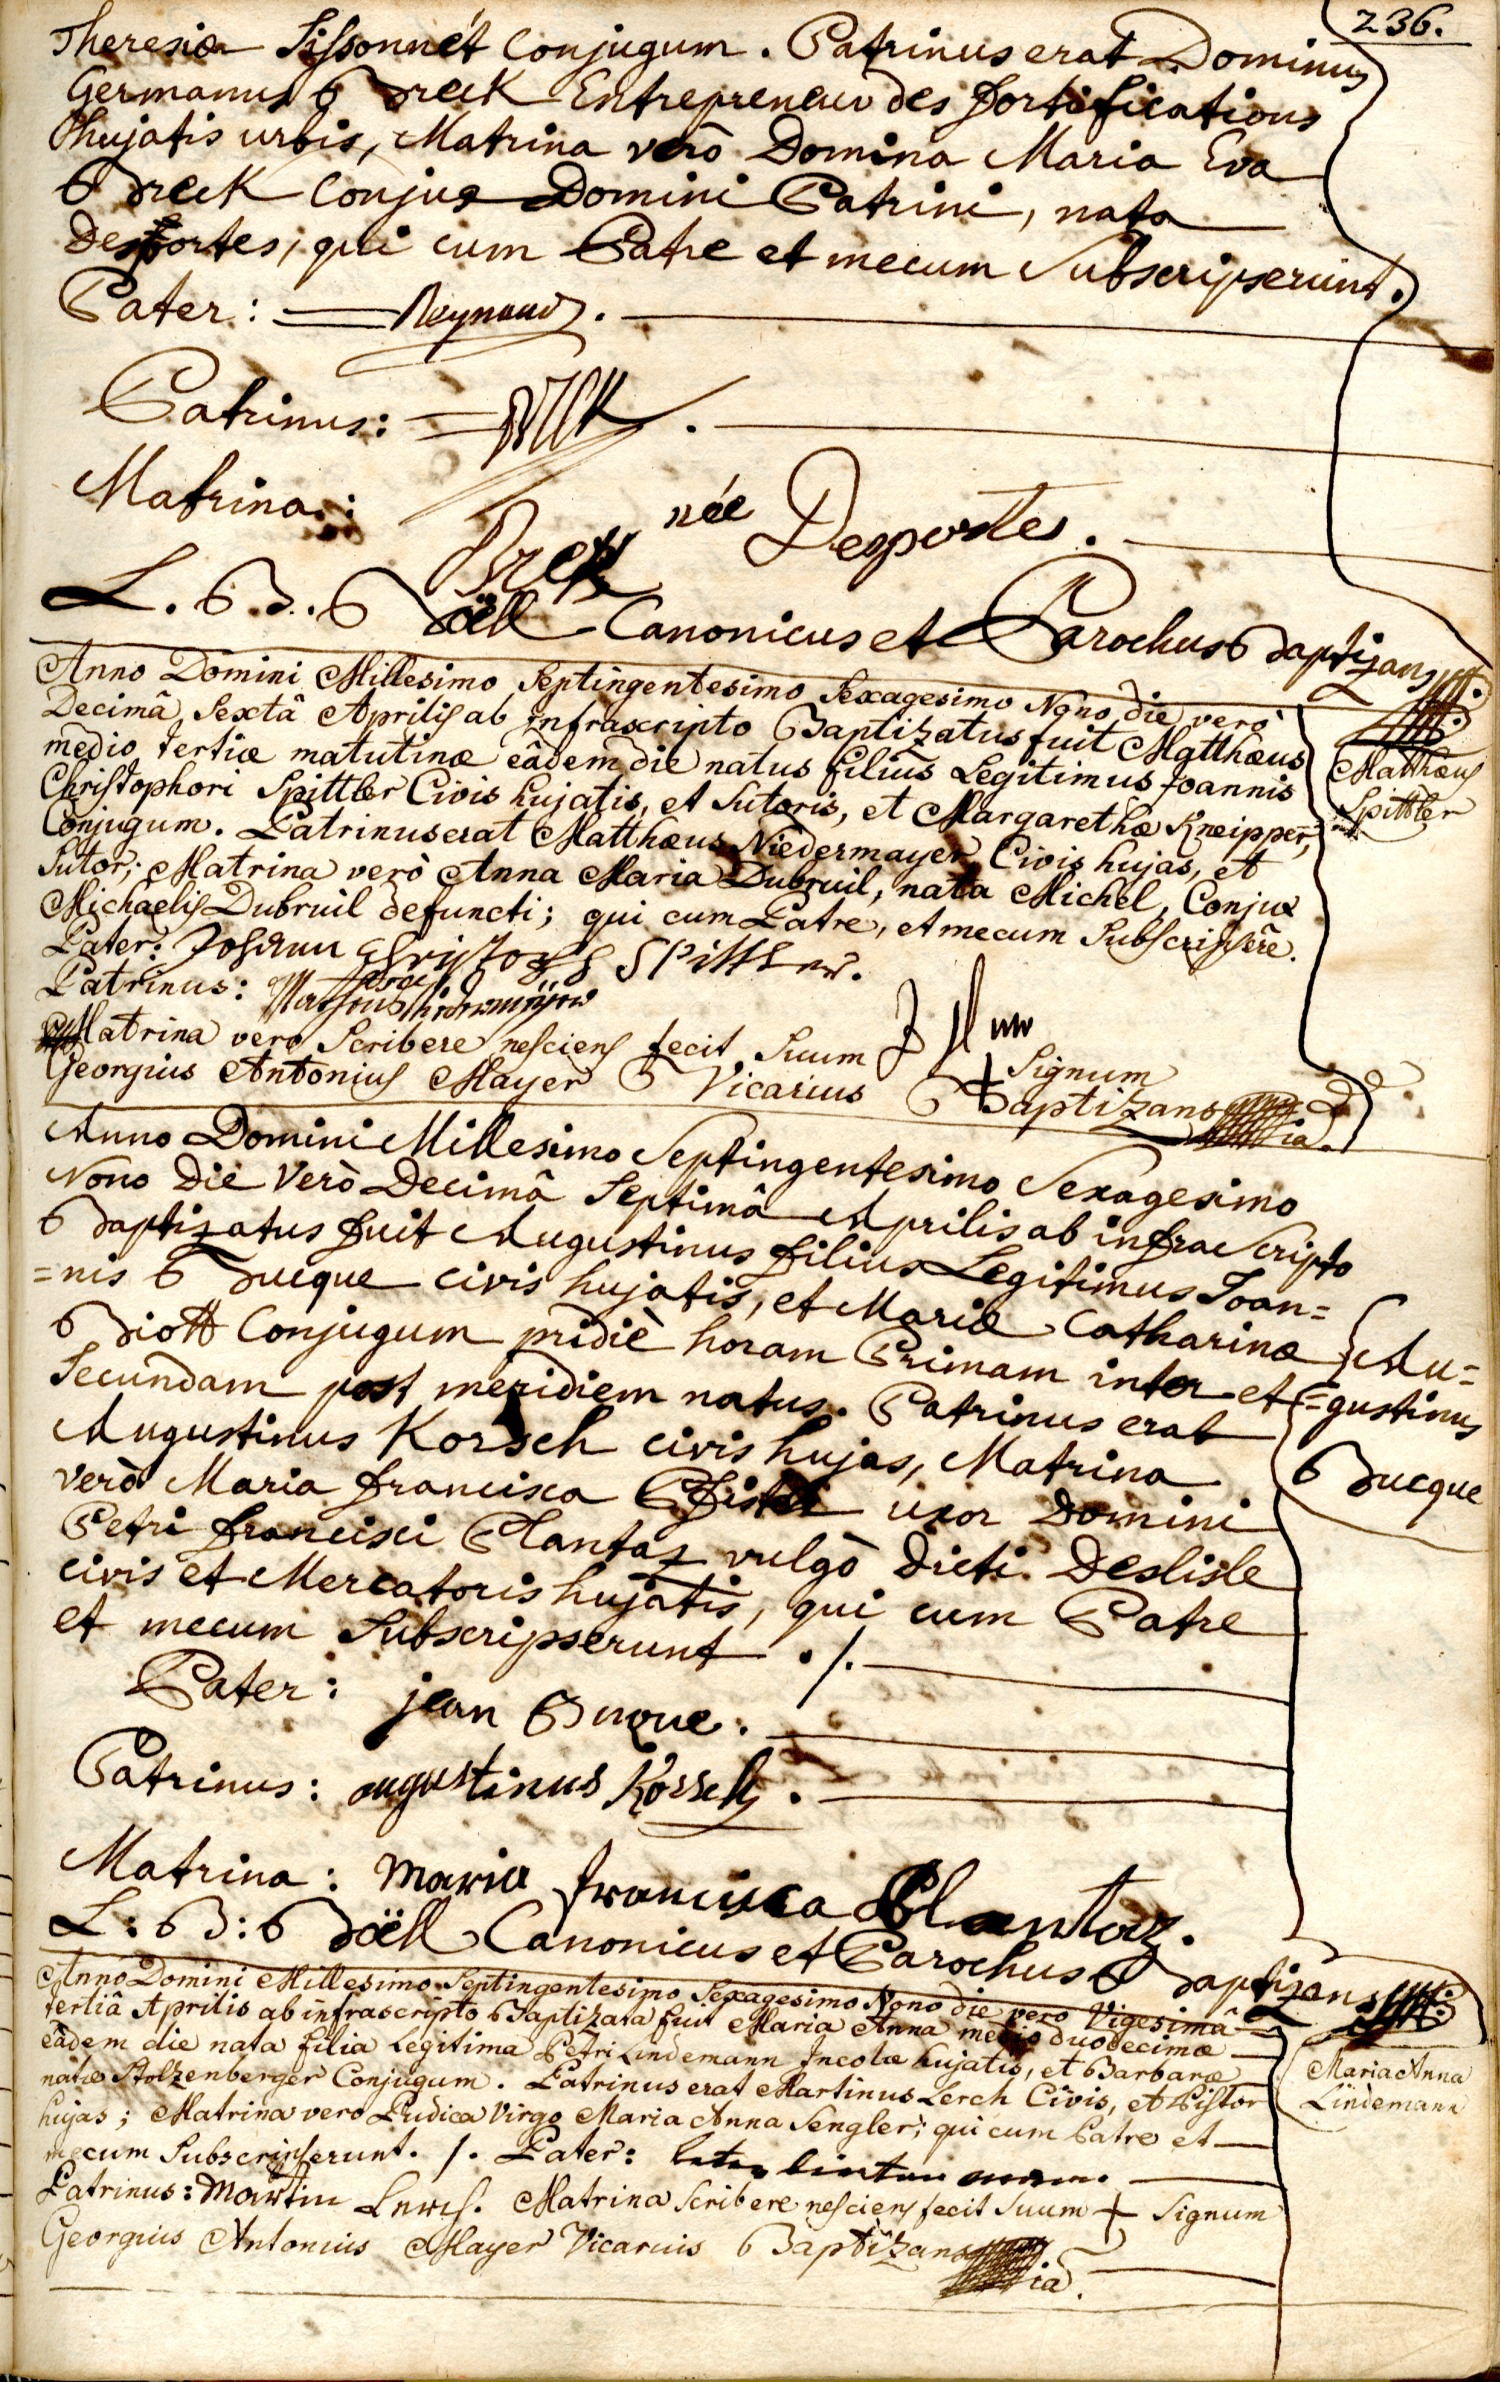 236.
Theresiæ Sissonnét Conjugum. Patrinus erat Dominus
Germanus Breck Entrepreneur des fortifications
hujatis urbis, Matrina verò Domina Maria Eva
Breck Conjux Domini Patrini, nata
Desportes, qui cum Patre et mecum Subscripserunt.
Pater: Reynaud.
Patrinus: Breck.
Matrina: Breck née Desportes.
L. B. Böell Canonicus et Parochus Baptizans
Anno Domini Millesimo Septingentesimo Sexagesimo Nono die verò
Decimâ Sextâ Aprilis ab infrascripto Baptizatus fuit Matthæus
medio tertiæ matutinæ eâdem die natus filius Legitimus Joannis
Christophori Spittler Civis hujatis, et Sutoris, et Margarethæ Kneipper,
Conjugum. Patrinus erat Matthæus Niedermayer Civis hujas, et
Sutor; Matrina verò Anna Maria Dubruil, nata Michel, Conjux
Michaelis Dubruil defuncti; qui cum Patre, et mecum Subscripsêre.
Matthæus
Spittler
Pater: Johann Christoph Spittler.
Patrinus:
Matrina vero Scribere nesciens fecit Suum + Signum
Georgius Antonius Mayer Vicarius Baptizans
Anno Domini Millesimo Septingentesimo Sexagesimo
Nono Die Verò Decimâ Septimâ Aprilis ab infra Scripto
Baptizatus fuit Augustinus filius Legitimus Joan=
=nis Bucque civis hujatis, et Mariæ Catharinæ
Biott Conjugum pridiè horam Primam inter et
Secundam post meridiem natus. Patrinus erat
Augustinus Korsch civis hujas, Matrina
verò Maria francisca Pfister uxor Domini
Petri francisci Plantaz vulgò dicti Deslisle
civis et Mercatoris hujatis, qui cum Patre
et mecum Subscripserunt ./.
Au=
=gustinus
Bucque
Pater: jean Buque.
Patrinus: augustinus Korsch.
Matrina: Maria francisca Plantaz.
L: B: Böell Canonicus et Parochus Baptizans
Anno Domini Millesimo Septingentesimo Sexagesimo Nono die vero Vigesimâ
tertiâ Aprilis ab infrascripto Baptizata fuit Maria Anna medio duodecimæ
eâdem die nata filia Legitima Petri Lindemann Incolæ hujatis, et Barbaræ
natæ Stolzenberger Conjugum. Patrinus erat Martinus Lerch Civis, et Pistor
hujas; Matrina vero Pudica Virgo Maria Anna Sengler; qui cum Patre et
mecum Subscripserunt. /. Pater:
Maria Anna
Lindemann
Patrinus: Martin Lerch. Matrina Scribere nesciens fecit Suum + Signum
Georgius Antonius Mayer Vicarius Baptizans